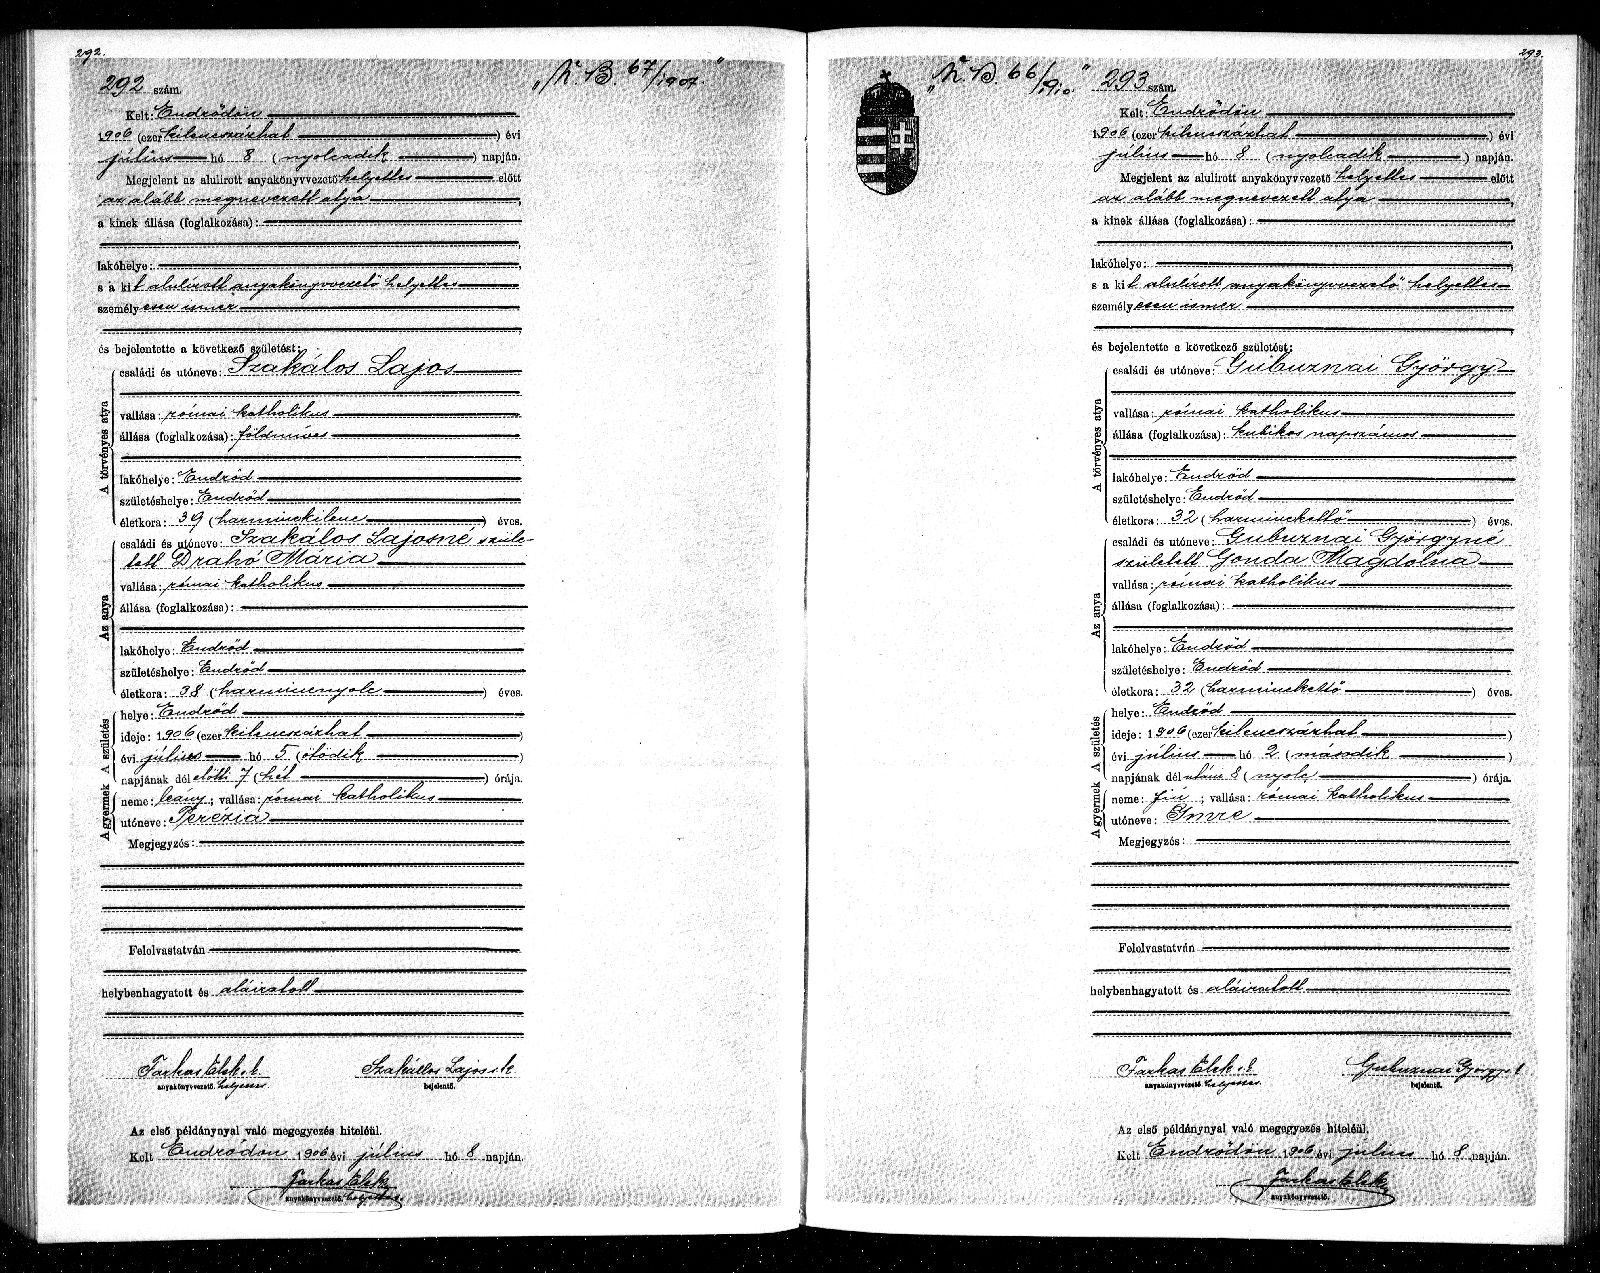 292.
292 szám.
„N B. 67/1907.”
Kelt: Endrődön
1906 (ezer kilenczszázhat ) évi
július hó 8 (nyolcadik ) napján.
Megjelent az alulirott anyakönyvvezető helyettes előtt
az alább megnevezett atyja
a kinek állása (foglalkozása):
lakóhelye:
s a kit alulírott anyakönyvvezető helyettes
személyesen ismer
és bejelentette a következő születést:
A törvényes atya
családi és utóneve: Szakálos Lajos
vallása: római katholikus
állása (foglalkozása): földmíves
lakóhelye: Endrőd
születéshelye: Endrőd
életkora: 39 (harminckilenc ) éves.
Az anya
családi és utóneve: Szakálos Lajosné szüle-
tett Drahó Mária
vallása: római katholikus
állása (foglalkozása):
lakóhelye: Endrőd
születéshelye: Endrőd
életkora: 38 (harmincnyolc ) éves.
A születés
helye: Endrőd
ideje: 1906 (ezer kilenczszázhat )
évi július hó 5 (ötödik )
napjának dél előtti 7 (hét ) órája.
A gyermek
neme: leány; vallása: római katholikus
utóneve: Terézia
Megjegyzés:
Felolvastatván
helybenhagyatott és aláíratott
Farkas Elek s. k. Szakállos Lajos s. k
anyakönyvvezető helyettes. bejelentő.
Az első példánynyal való megegyezés hiteléül.
Kelt Endrődön 1906 évi július hó 8 napján.
Farkas Elek
anyakönyvvezető. helyettes.
293.
„N B. 66/1910.”
293 szám.
Kelt: Endrődön
1906 (ezer kilenczszázhat ) évi
július hó 8 (nyolcadik ) napján.
Megjelent az alulirott anyakönyvvezető helyettes előtt
az alább megnevezett atyja
a kinek állása (foglalkozása):
lakóhelye:
s a kit alulírott anyakönyvvezető helyettes
személyesen ismer
és bejelentette a következő születést:
A törvényes atya
családi és utóneve: Gubuznai György
vallása: római katholikus
állása (foglalkozása): kubikos napszámos
lakóhelye: Endrőd
születéshelye: Endrőd
életkora: 32 (harminckettő ) éves.
Az anya
családi és utóneve: Gubuznai Györgyné
született Gonda Magdolna
vallása: római katholikus
állása (foglalkozása):
lakóhelye: Endrőd
születéshelye: Endrőd
életkora: 32 (harminckettő ) éves.
A születés
helye: Endrőd
ideje: 1906 (ezer kilenczszázhat )
évi július hó 2 (második )
napjának dél utáni 8 (nyolc ) órája.
A gyermek
neme: fiú; vallása: római katholikus
utóneve: Imre
Megjegyzés:
Felolvastatván
helybenhagyatott és aláíratott
Farkas Elek s. k. Gubuznai György s. k
anyakönyvvezető helyettes. bejelentő.
Az első példánynyal való megegyezés hiteléül.
Kelt Endrődön 1906 évi július hó 8 napján.
Farkas Elek
anyakönyvvezető.